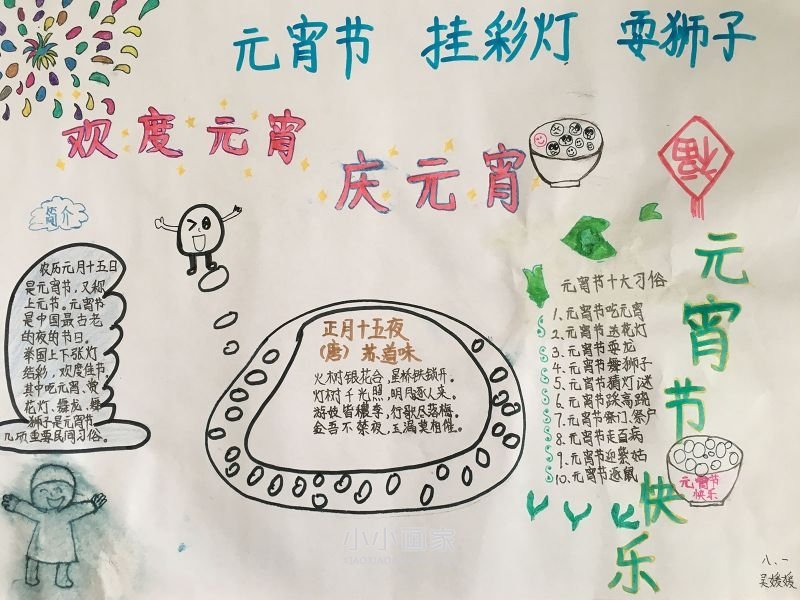 元宵节 挂彩灯 耍狮子
欢度元宵
庆元宵
福
简介
农历元月十五日
是元宵节，又称
上元节。元宵节
是中国最古老
的夜的节日。
举国上下张灯
结彩，欢度佳节
其中吃元宵、赏
花灯、舞龙、舞
狮子是元宵节
几项重要民间习俗。
正月十五夜
（唐）苏道味
火树银花合，星桥铁锁开。
灯树千光照，明月逐人来。
游伎皆秾李，行歌尽落梅。
金吾不禁夜，玉漏莫相催。
元宵节十大习俗
1、元宵节吃元宵
2、元宵节送花灯
3、元宵节耍龙
4、元宵节舞狮子
5、元宵节猜灯谜
6、元宵节踩高跷
7、元宵节祭门、祭户
8、元宵节走百病
9、元宵节迎紫姑
10、元宵节逐鼠
元宵节快乐
元宵节
快乐
小小画家
八、一
吴媛媛